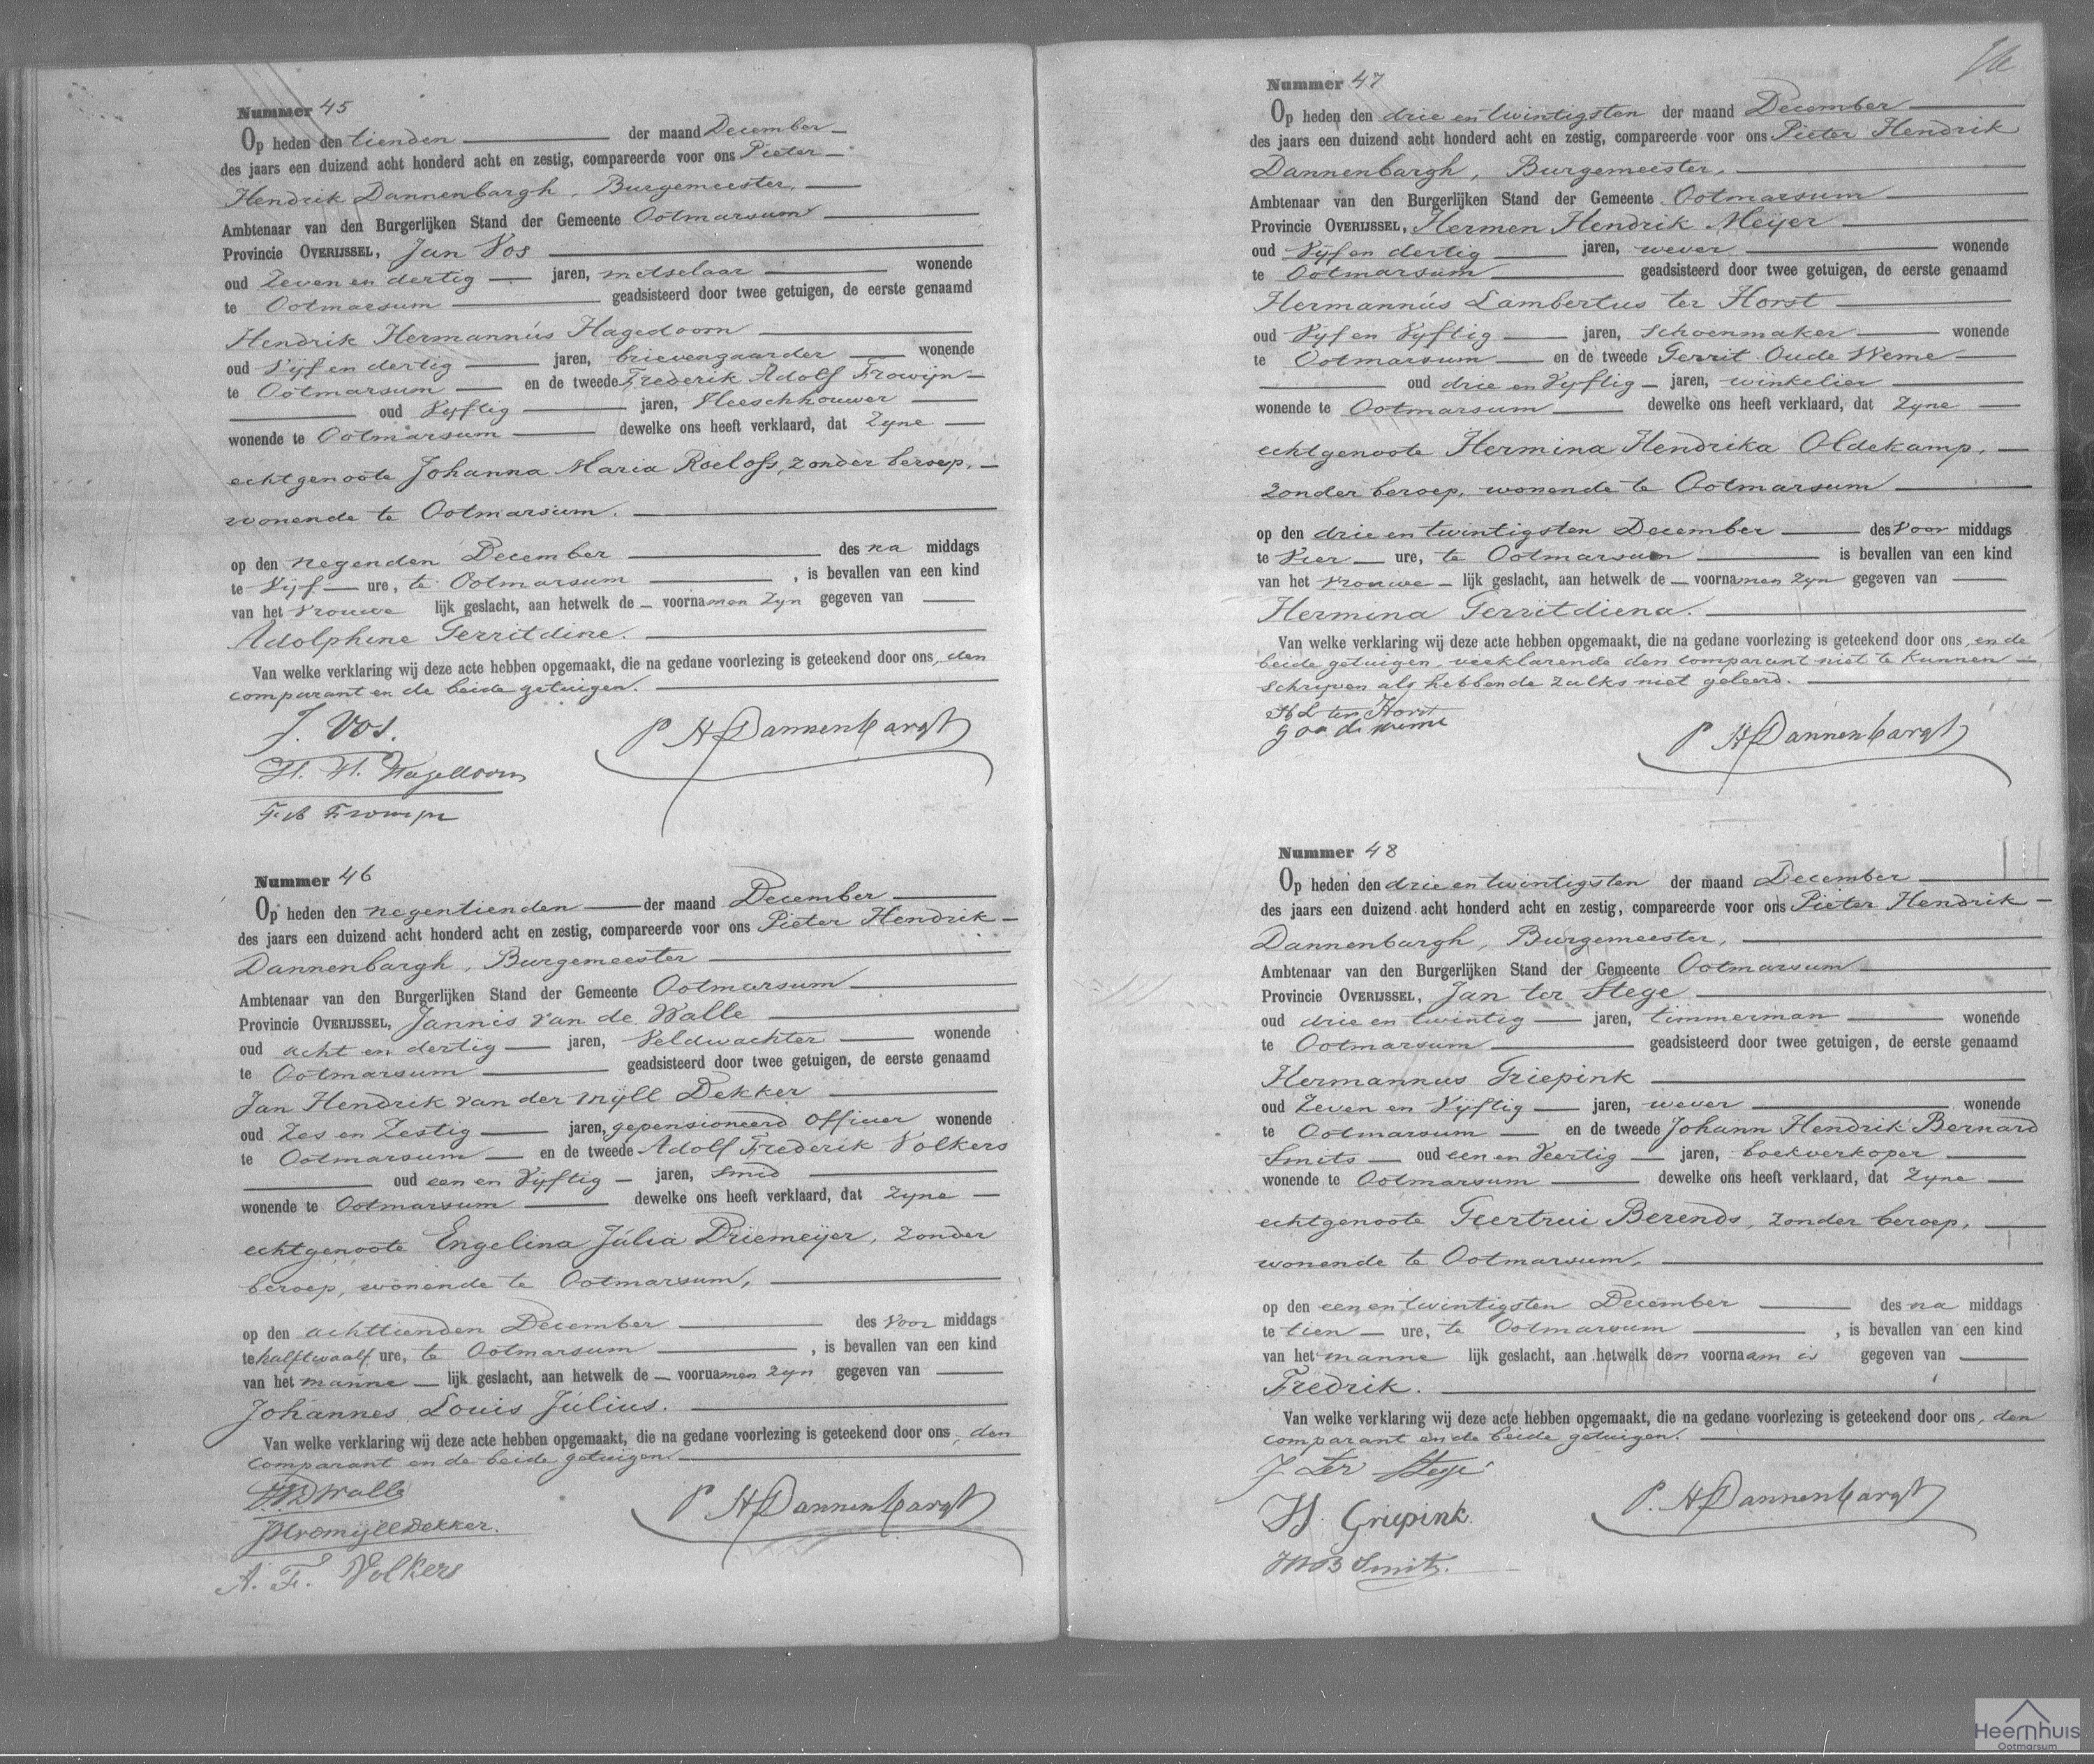 Nummer 45
Op heden den tienden der maand December
des jaars een duizend acht honderd acht en zestig, compareerde voor ons Pieter
Hendrik Dannenbargh, Burgemeester,
Ambtenaar van den Burgerlijken Stand der Gemeente Ootmarsum
Provincie OVERIJSSEL, Jan Vos
oud Zeven en dertig jaren, metselaar wonende
te Ootmarsum geadsisteerd door twee getuigen, de eerste genaamd
Hendrik Hermannús Hagedoorn
oud Vijf en dertig jaren, brievengaarder wonende
te Ootmarsum en de tweede Frederik Adolf Frowijn
oud Vyftig jaren, Vleeschhouwer
wonende te Ootmarsum dewelke ons heeft verklaard, dat Zyne
echtgenoote Johanna Maria Roelofs, zonder beroep,
wonende te Ootmarsum.
op den negenden December des na middags
te Vijf ure, te Ootmarsum , is bevallen van een kind
van het Vrouwe lijk geslacht, aan hetwelk de voornamen Zyn gegeven van
Adolphine Gerritdine.
Van welke verklaring wij deze acte hebben opgemaakt, die na gedane voorlezing is geteekend door ons, den
comparant en de beide getuigen.
J. Vos.
P H Dannenbargh
H. H. Hagedoorn
Nummer 46
Op heden den negentienden der maand December
des jaars een duizend acht honderd acht en zestig, compareerde voor ons Pieter Hendrik
Dannenbargh, Burgemeester
Ambtenaar van den Burgerlijken Stand der Gemeente Ootmarsum
Provincie OVERIJSSEL, Jannis van de Walle
oud acht en dertig jaren, Veldwachter wonende
te Ootmarsum geadsisteerd door twee getuigen, de eerste genaamd
Jan Hendrik van der Mijll Dekker
oud Zes en Zestig jaren, gepensioneerd Officier wonende
te Ootmarsum en de tweede Adolf Frederik Volkers
oud een en Vyftig jaren, Smid
wonende te Ootmarsum dewelke ons heeft verklaard, dat Zyne
echtgenoote Engelina Júlia Driemeijer, Zonder
beroep, wonende te Ootmarsum,
op den achttienden December des Voor middags
te halftwaalf ure, te Ootmarsum , is bevallen van een kind
van het manne lijk geslacht, aan hetwelk de voornamen Zyn gegeven van
Johannes Louis Július.
Van welke verklaring wij deze acte hebben opgemaakt, die na gedane voorlezing is geteekend door ons, den
comparant en de beide getuigen
P H Dannenbargh
A. F. Volkers
Nummer 47
Op heden den drie en twintigsten der maand December
des jaars een duizend acht honderd acht en zestig, compareerde voor ons Pieter Hendrik
Dannenbargh, Burgemeester,
Ambtenaar van den Burgerlijken Stand der Gemeente Ootmarsum
Provincie OVERIJSSEL, Hermen Hendrik Meijer
oud Vijf en dertig jaren, wever wonende
te Ootmarsum geadsisteerd door twee getuigen, de eerste genaamd
Hermannús Lambertus ter Horst
oud Vijf en Vyftig jaren, Schoenmaker wonende
te Ootmarsum en de tweede Gerrit Oude Weme
oud drie en Vyftig jaren, winkelier
wonende te Ootmarsum dewelke ons heeft verklaard, dat Zyne
echtgenoote Hermina Hendrika Oldekamp,
zonder beroep, wonende te Ootmarsum
op den drie en twintigsten December des Voor middags
te Vier ure, te Ootmarsum is bevallen van een kind
van het Vrouwe lijk geslacht, aan hetwelk de voornamen Zyn gegeven van
Hermina Gerritdiena.
Van welke verklaring wij deze acte hebben opgemaakt, die na gedane voorlezing is geteekend door ons, en de
beide getuigen, verklarende den comparant niet te kunnen
schrijven als hebbende zulks niet geleerd.
H L ter Horst
P H Dannenbargh
Nummer 48
Op heden den drie en twintigsten der maand December
des jaars een duizend acht honderd acht en zestig, compareerde voor ons Pieter Hendrik
Dannenbargh, Burgemeester,
Ambtenaar van den Burgerlijken Stand der Gemeente Ootmarsum
Provincie OVERIJSSEL, Jan ter Stege
oud drie en twintig jaren, timmerman wonende
te Ootmarsum geadsisteerd door twee getuigen, de eerste genaamd
Hermannus Griepink
oud Zeven en Vijftig jaren, wever wonende
te Ootmarsum en de tweede Johann Hendrik Bernard
Smits oud een en Veertig jaren, boekverkoper
wonende te Ootmarsum dewelke ons heeft verklaard, dat Zyne
echtgenoote Geertrui Berends, zonder beroep,
wonende te Ootmarsum,
op den een en twintigsten December des na middags
te tien ure, te Ootmarsum , is bevallen van een kind
van het manne lijk geslacht, aan hetwelk den voornaam is gegeven van
Fredrik.
Van welke verklaring wij deze acte hebben opgemaakt, die na gedane voorlezing is geteekend door ons, den
comparant en de beide getuigen.
J Ter Stege
P. H Dannenbargh
H. Griepink.
JHB Smits.
Heemhuis
Ootmarsum